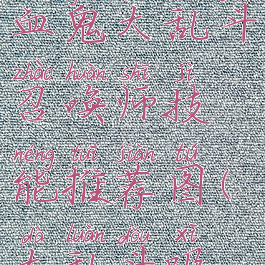 血鬼大乱斗
zhào huàn shī jì
召唤师技
néng tuī jiàn tú
能推荐图(
dà luàn dòu xī